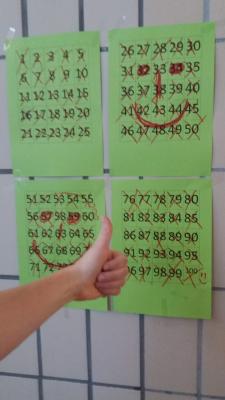 1 2 3 4 5
6 7 8 9 10
11 12 13 14 15
16 17 18 19 20
21 22 23 24 25
26 27 28 29 30
31 32 33 34 35
36 37 38 39 40
41 42 43 44 45
46 47 48 49 50
51 52 53 54 55
56 57 58 59 60
61 62 63 64 65
66 67 68 69
71 72
76 77 78 79 80
81 82 83 84 85
86 87 88 89 90
91 92 93 94 95
96 97 98 99 100